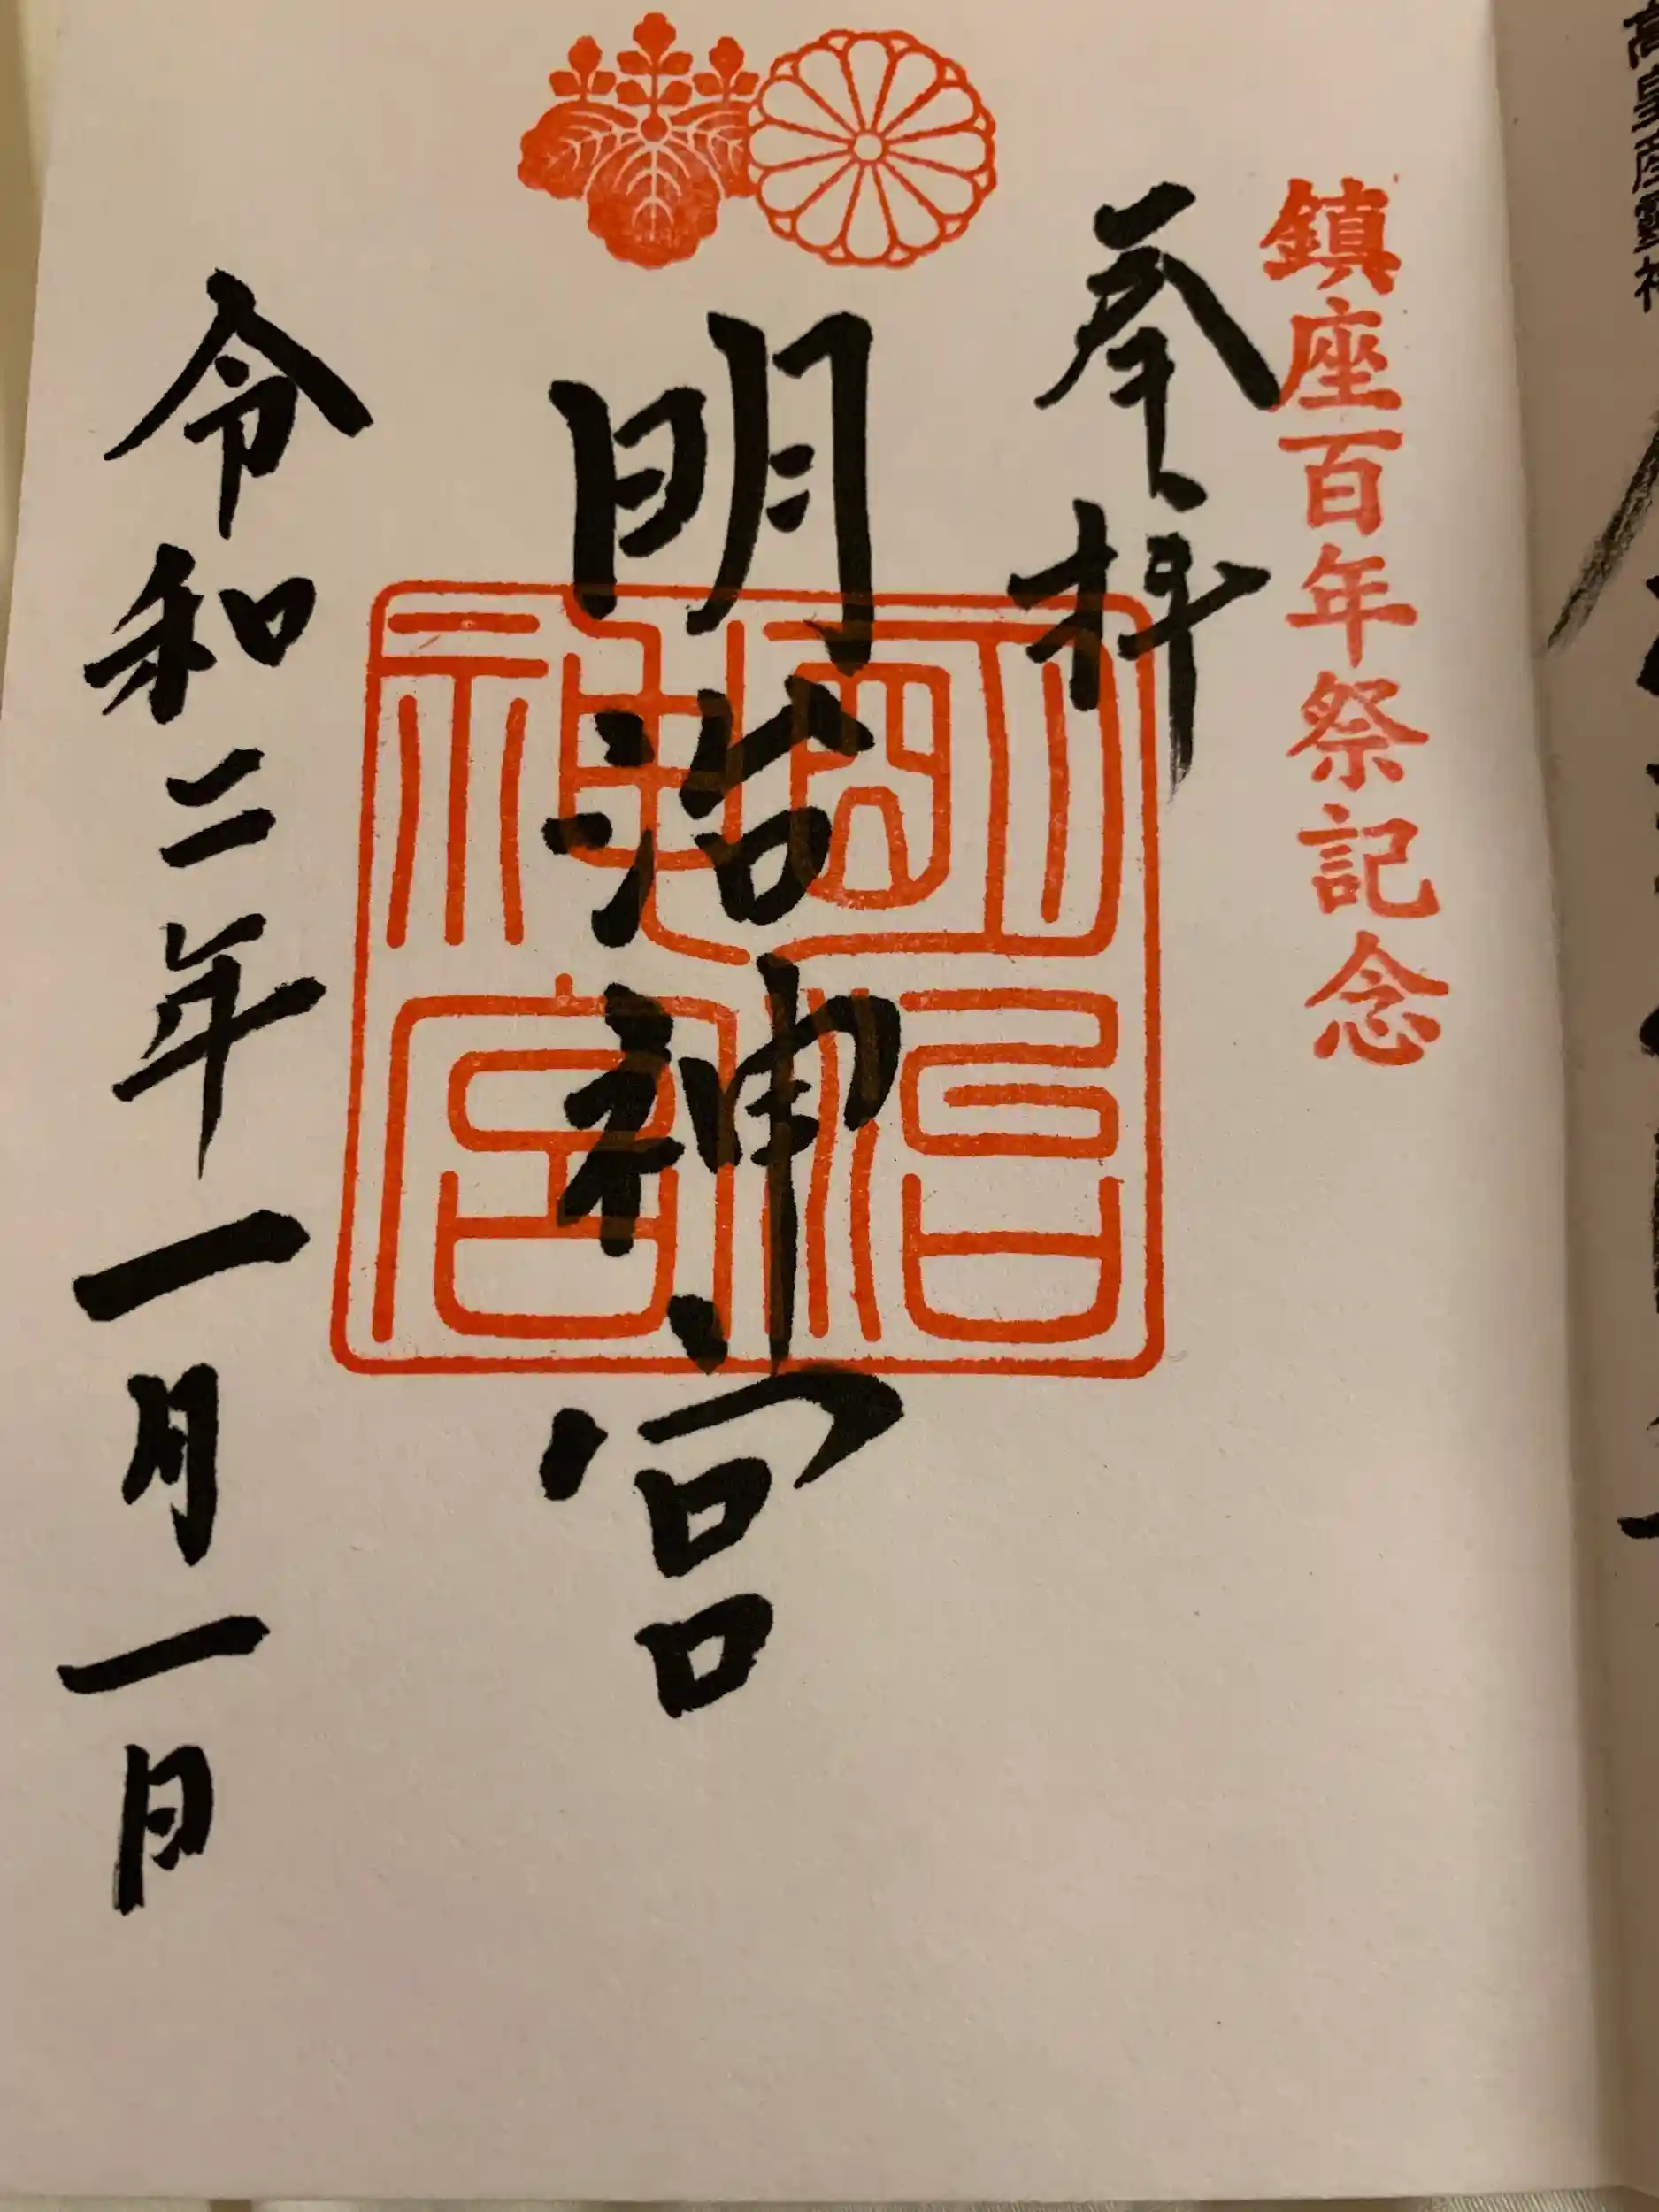 鎮座百年祭記念
奉拝
明治神宮
明治神宮
令和二年一月一日